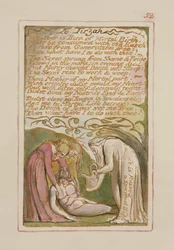 To Tirzah
is Born of Mortal Birth
Must be consumed with the Earth
To rise from Generation free
Then what have I to do with thee
The Sexes sprung from Shame & Pride
in the morn in evening
Death into Sleep
The Sexes rose to work & weep
Thou Mother of my Mortal part
With cruelty didst mould my Heart
And with false self-decieving tears
Didst bind my Nostrils Eyes & Ears
Didst close my Tongue in senseless clay
And me to Mortal Life betray
The Death of Jesus set me free
Then what have I to do with thee